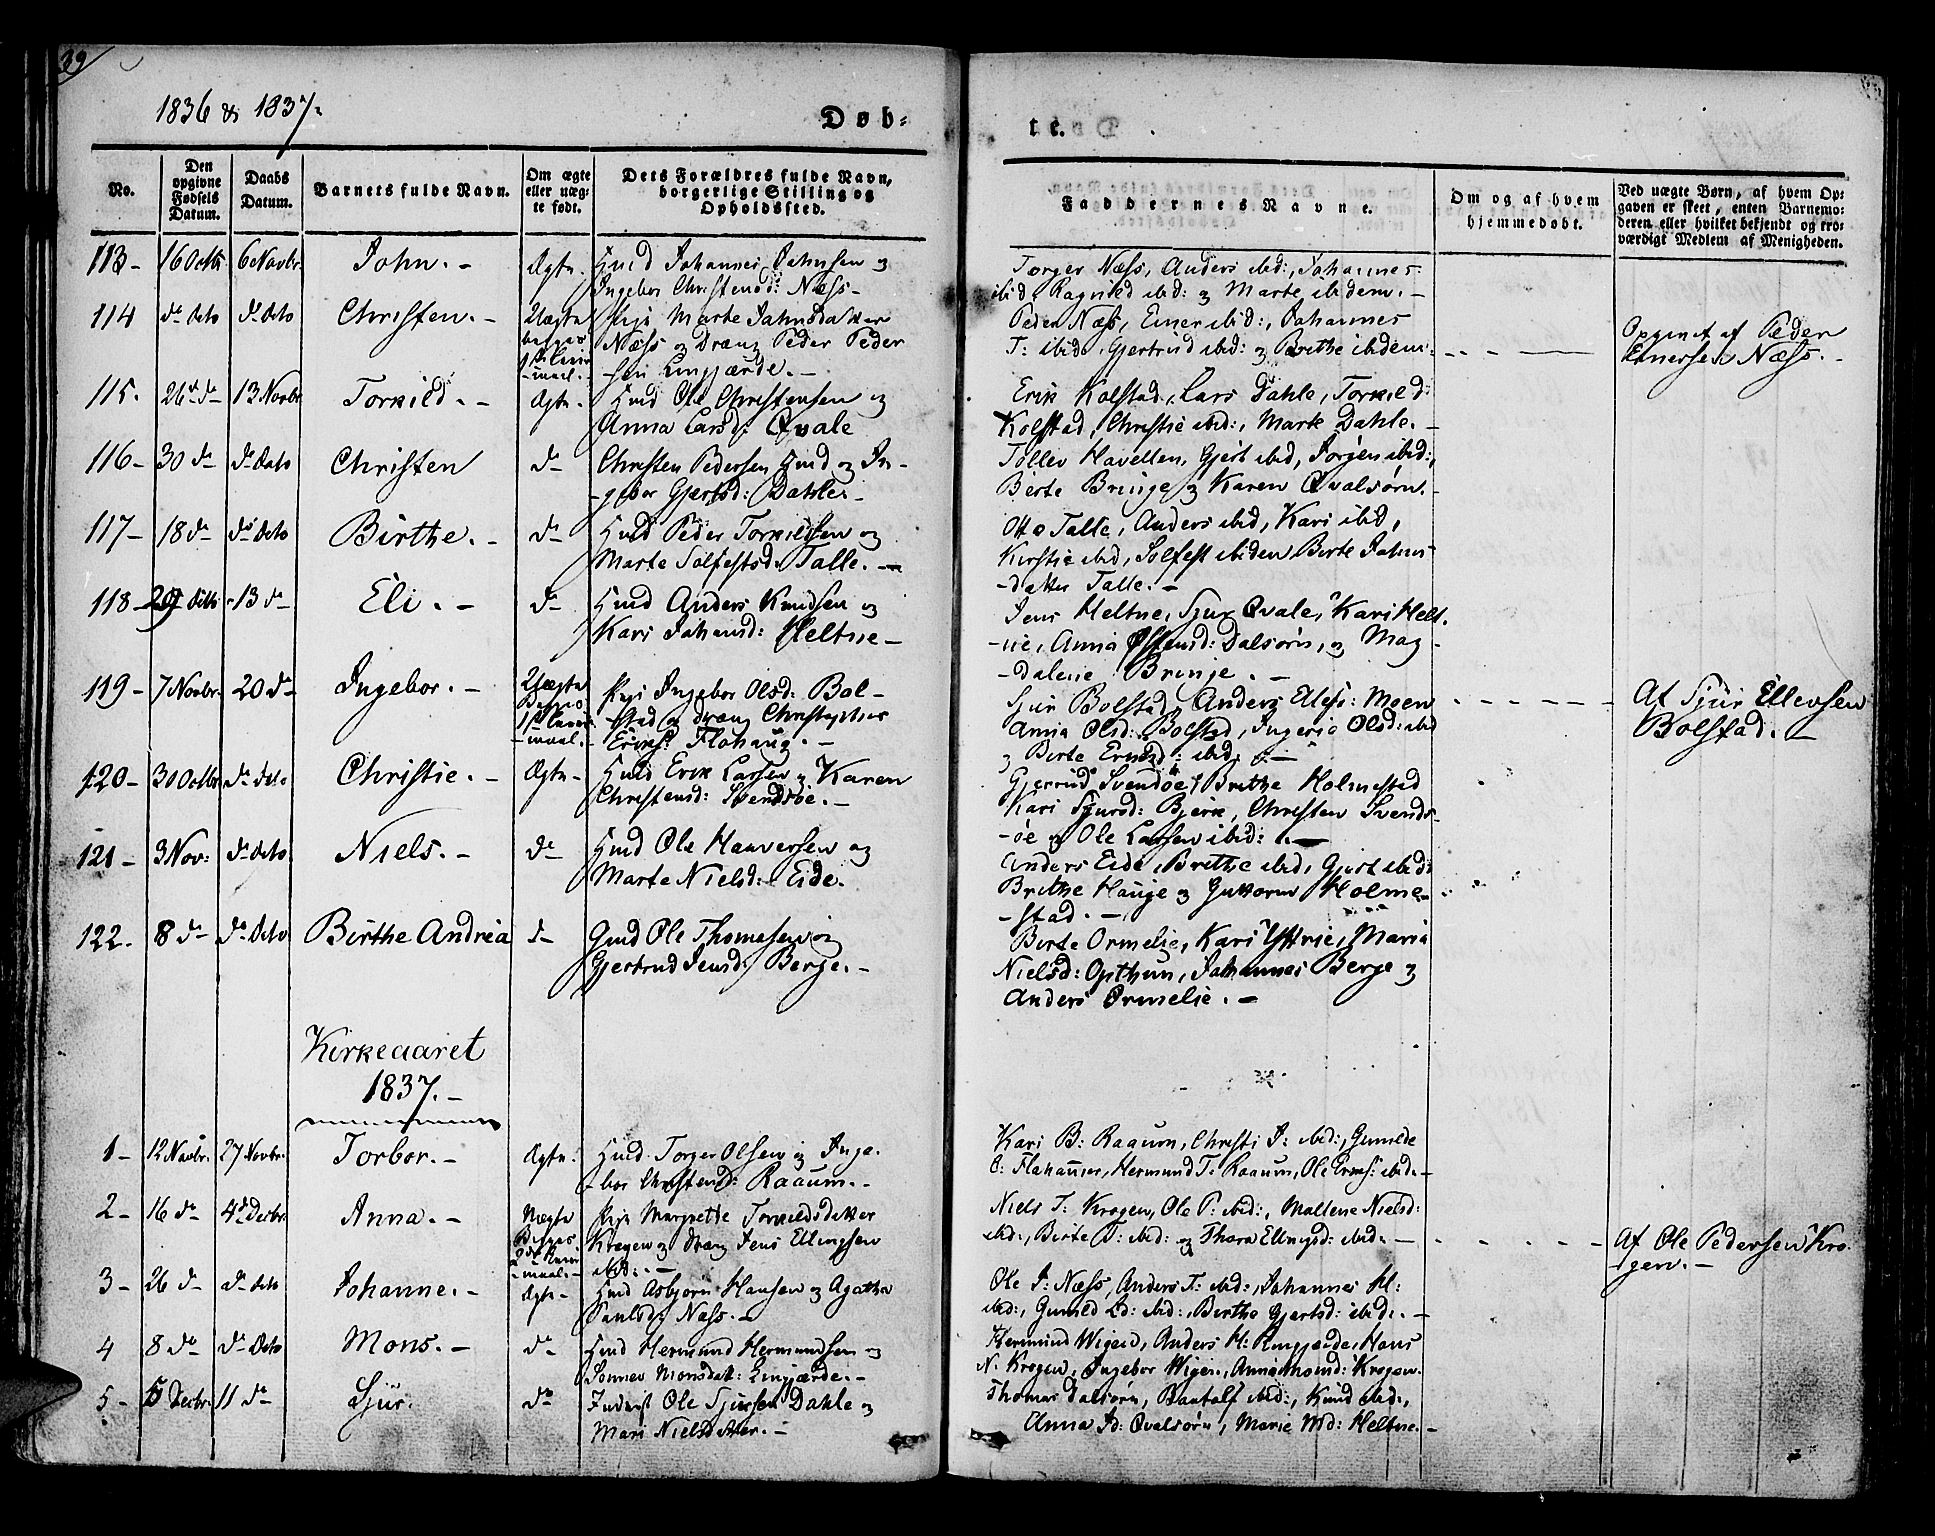 39
1836 & 1837.
Døb-
te.
No.
Den
opgivne
Fødsels
Datum.
Daabs
Datum.
Barnets fulde Navn.
Om ægte
eller uæg-
te født.
Dets Forældres fulde Navn,
borgerlige Stilling og
Opholdssted.
Faddernes Navne.
Om og af hvem
hjemmedøbt.
Ved uægte Børn, af hvem Op-
gaven er skeet, enten Barnemo-
deren eller hvilket bekjendt og tro-
værdigt Medlem af Menigheden.
113- 16 Octbr 6 Novbr. John. - Ægte. Hmd Johannes Johnsen og
Ingebor Christensd: Næss-
Torger Næss, Anders ibid:, Johannes
ibid, Ragnild ibid: og Marte ibidem. -
114 do dto do dto Christen. - Uægte Pige Marte Johnsdatter
Næss og Dreng Peder Peder
sen Lingjærde. -
Peder Næss, Einer ibid:, Johannes
T: ibid, Gjertrud ibid: og Brithe ibidem:
Opgivet af Peder
Einersen Næss. -
115. 26 do 13 Novbr Torkild. - Ægte. Hmd Ole Christensen og
Anna Larsd: Qvale
Erik Kolstad, Lars Dahle, Torkild:
Kolstad, Christie ibid:, Marte Dahle. -
116- 30 do do dato Christen do Christen Pedersen Hmd og In-
-gebor Gjertsd: Dahle. -
Tollev Havellen, Gjert ibid, Jørgen ibid:,
Berte Bringe og Karen Qvalsørn.
117- 18 do do dto Birthe. - do Hmd Peder Torkildsen og
Marte Solfestsd: Talle. -
Otto Talle, Anders ibid, Kari ibid,
Kirstie ibid, Solfest ibidem Berte Johns-
-datter Talle. -
118- 29 Octbr 13 do Eli. - do Hmd Anders Knudsen og
Kari Johansd: Heltne -
Jens Heltne, Sjur Qvale, Kari Helt-
-ne, Anna Ostensd: Dalsørn, og Mag-
-dalene Bringe. -
119- 7 Novbr. 20 do Ingebor. - Uægte Pige Ingebor Olsd: Bol-
-stad og Dreng Christopher
Eriks: Flohaug. -
Sjur Bolstad, Anders Elles: Moen
Anna Olsd: Bolstad, Ingerie Olsd: ibid
og Berte Ernsd: ibid. -
Af Sjur Ellevsen
Bolstad. -
120- 30 Octbr do dto Christie. - Ægte- Hmd Erik Larsen og Karen
Christensd: Svendsøe. -
Gjerrud Svendsøe, Brithe Holmestad
Kari Sjursd: Bjerk, Christen Svends-
-øe og Ole Larsen ibid: -
121- 3 Nov: do dto Niels. - do Hmd Ole Haaversen og
Marte Nielsd: Eide.
Anders Eide, Brithe ibid, Gjert ibid:
Brithe Hauge og Guttorm Holme-
-stad. -
122. 8 do do dto Birthe Andrea do Gmd Ole Thomasen og
Gjertrud Jensd: Berge. -
Berte Ormelie, Kari Yttrie, Maria
Nielsd: Opthun, Johannes Berge og
Anders Ormelie. -
Kirkeaaret
1837. -
1- 12 Novbr. 27 Novbr. Torbor. - Ægte. Hmd Torger Olsen og Inge-
-bor Christensd: Raaum. -
Kari B: Raaum, Christi J: ibid:, Gunilde
O: Flahamer, Hermund T: Raaum, Ole Erms: ibid. -
2- 16 do 4 Decbr. Anna. - Uægte Pige Margrette Torkildsdatter
Krogen og Dreng Jens Ellingsen
ibid: -
Niels T: Krogen, Ole P: ibid:, Maltene Nielsd:
ibid:, Birte T: ibid: og Thora Ellingsd: ibid. -
Af Ole Pedersen Kro-
-gen. -
3- 26 do do dto Johanne. - Ægte- Hmd Asbjørn Hansen og Agatha
Paulsd: Næss. -
Ole J: Næss, Anders T: ibid:, Johannes H:
ibid:, Gunild Ld: ibid:, Birthe Gjertsd: ibid: -
4 8 do do dto Mons. - do Hmd Hermund Hermundsen og
Sonnev Monsdat: Lingjærde. -
Hermund Wigen, Anders H: Ringjærde, Hans
N. Krogen, Ingebor Wigen, Anna Monsd: Krogen.
5- 5 Decbr. 11 do Sjur. do Inderst Ole Sjursen Dahle og
Mari Nielsdatter. -
Thomas Dalsørn, Baatolf ibid:, Knud ibid:,
Anna Jd: Qvalsørn, Marie Md: Heltne. -